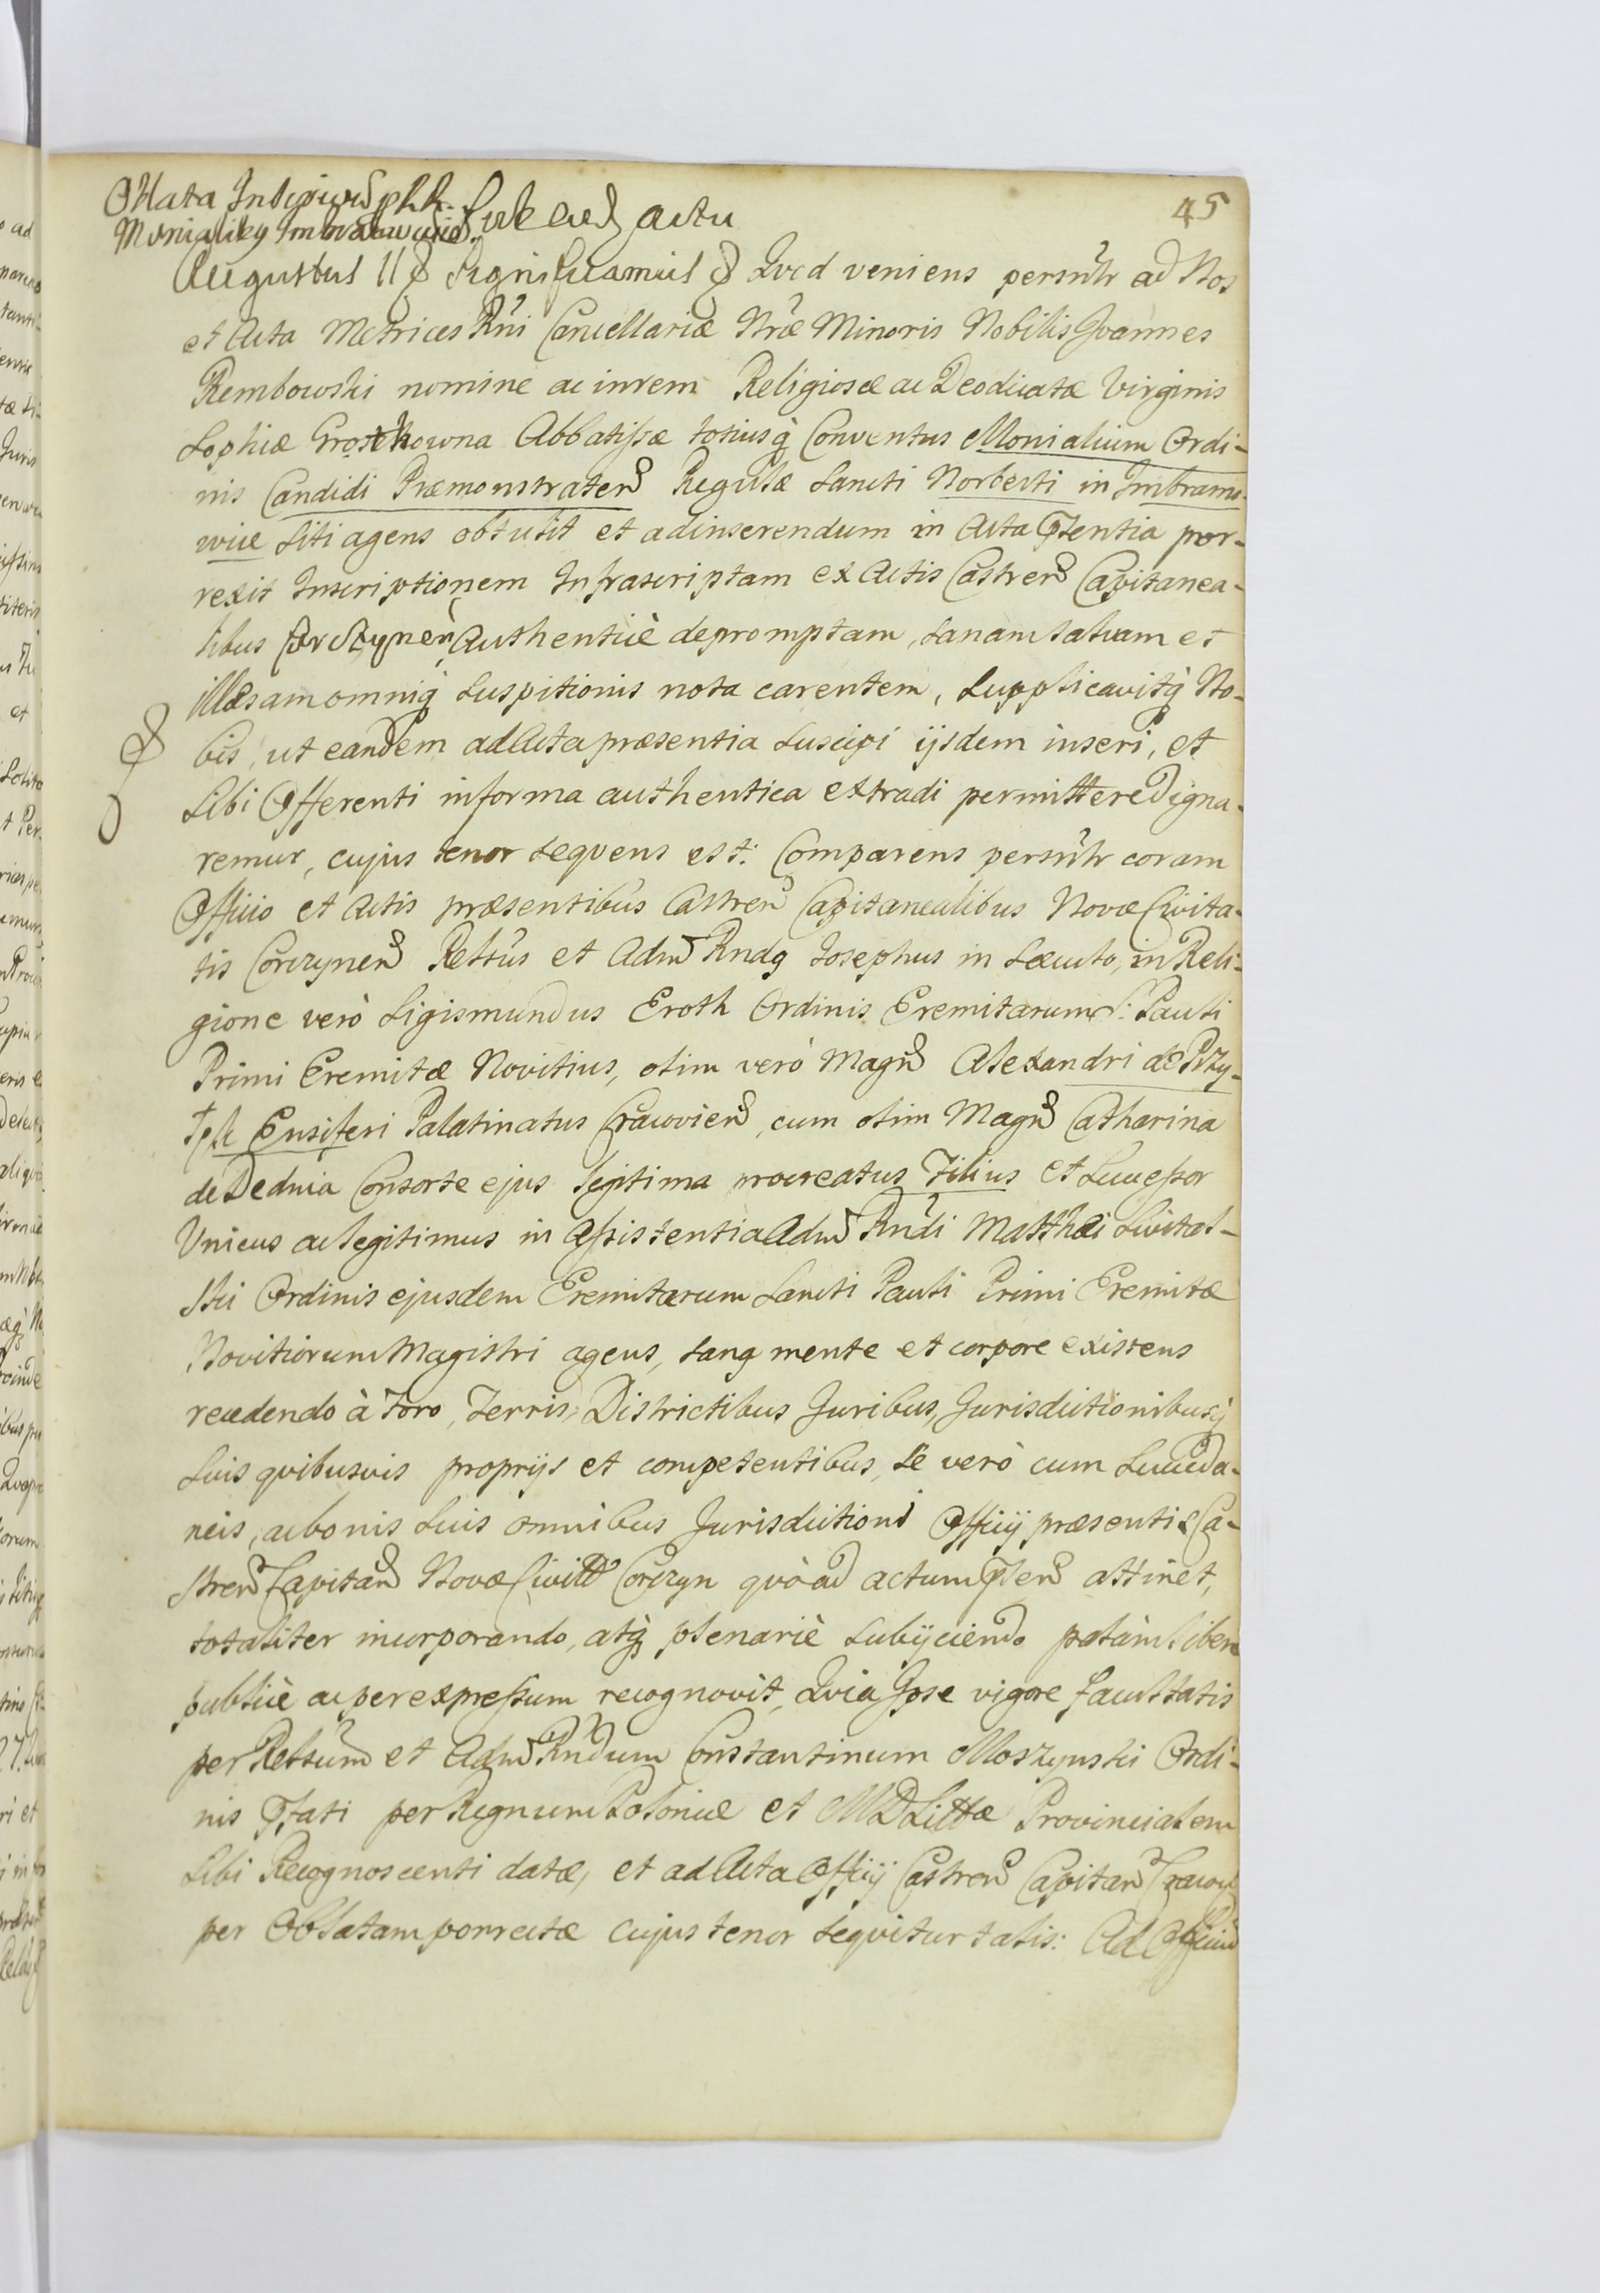 45
Oblata Inscription͂ pkk
Monialibg Imbramovicen͂. Sub eod͂ actu
Augustus II & Significamus & Qvod veniens persnl̃r ad Nos
et Acta Metrices Rñi Cancellariæ Nr̃æ Minoris Nobilis Joannes
Rembowski nomine ac in rem Religiosæ ac Deodicatæ Virginis
Sophiæ Grothowna Abbatissæ totiusq̃ Conventus Monialium Ordi-
nis Candidi Præmonstraten͂ Regulæ Sancti Norberti in Imbramo-
wice Siti agens obtulit et ad inserendum in Acta p̃sentia por-
rexit Inscriptionem Infrascriptam ex Actis Castren͂ Capitanea-
libus Corczynen͂ Authenticè depromptam, sanam salvam et
illæsam omniq̃ Suspitionis nota carentem, Supplicavitq̃ No-
bis, ut eandem ad Acta præsentia Suscipi ijsdem inseri, et
Sibi Offerenti in forma authentica extradi permittere Digna-
remur, cujus tenor seqvens est: Comparens persnl̃r coram
Officio et Actis præsentibus Castren͂ Capitanealibus Novæ Civita-
tis Corczynen͂ Relsũs et Adm͂ Rndg Josephus in Sæculo, in Reli-
gione verò Sigismundus Eroth Ordinis Eremitarum S: Pauli
Primi Eremitæ Novitius, olim verò Magn͂ Alexandri de Przy-
Ensiferi Palatinatus Cracovien͂, cum olim Magn͂ Catharina
de Dednia Consorte ejus legitima procreatus Filius et Successor
Vnicus ac legitimus in Assistentia Adm͂ Rñdi Matthæi Swital-
ski Ordinis ejusdem Eremitarum Sancti Pauli Primi Eremitæ
Novitiorum Magistri agens, sang mente et corpore existens
recedendo à Foro, Terris, Districtibus Juribus, Jurisdictionibusq̃
Suis qvibusvis proprijs et competentibus, Se verò cum Succeda-
neis, ac bonis Suis omnibus Jurisdictioni Officij præsentis Ca-
stren͂ Capitan͂ Novæ Civitt͂ Corczyn qvò ad actum p̃sen͂ attinet,
totaliter incorporando, atq̃ plenariè Subijciendo palàm libere
publicè ac per expressum recognovit, Qvia Ipse vigore facultatis
per Relsum͂ et Adm͂ Rñdum Constantinum Moszynski Ordi-
nis p̃fati per Regnum Poloniæ et M D Littæ Provincialem
Sibi Recognoscenti datæ, et ad Acta Officij Castren͂ Capitan͂ Cracov͂
per Oblatam porrectæ cujus tenor seqvitur talis: Ad Officiu͂